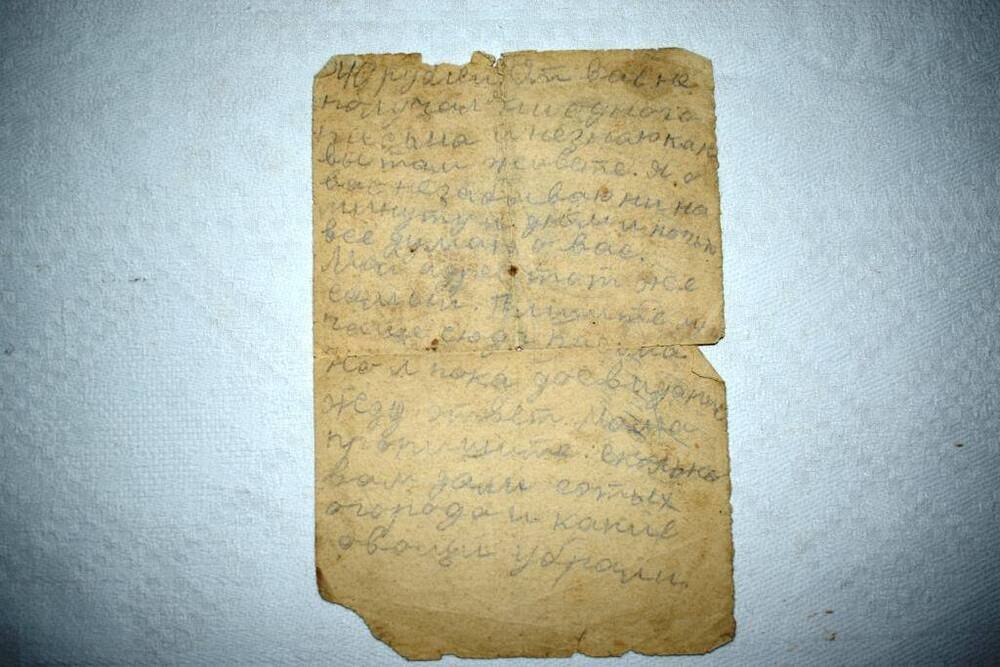 40 рублей. От вас не
получал ни одного
письма и незнаю как
вы там живете. Я о
вас незабываю ни на
минуту и днем и ночью
все думаю о вас.
Мой адрес тот же
самый. Пишите мне
чаще сюда письма
Но и пока досвидание
Жду ответ. Мама
пропишите сколько
вам дали сотых
огорода и какие
овощи убрали.